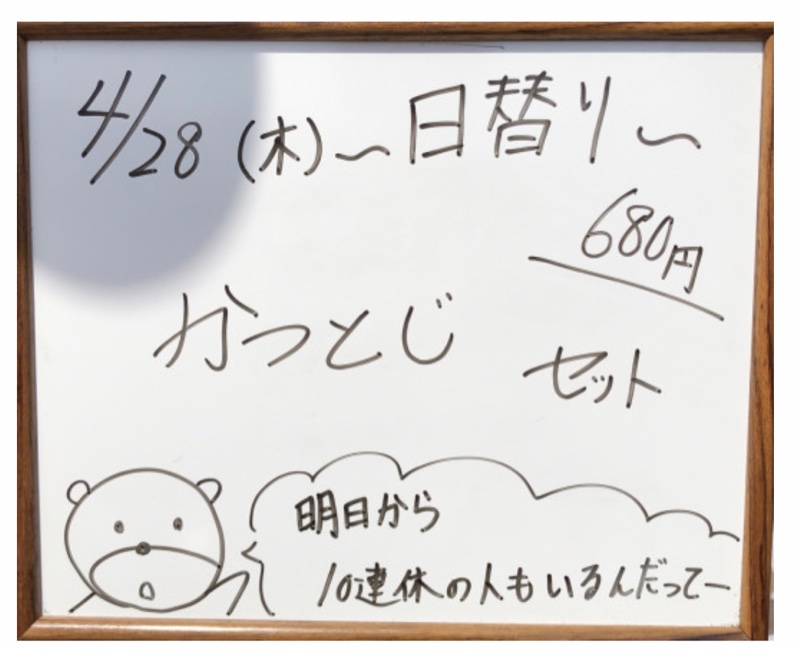 4/28(木)〜日替り〜
680円
かつとじ
セット
明日から
10連休の人もいるんだってー